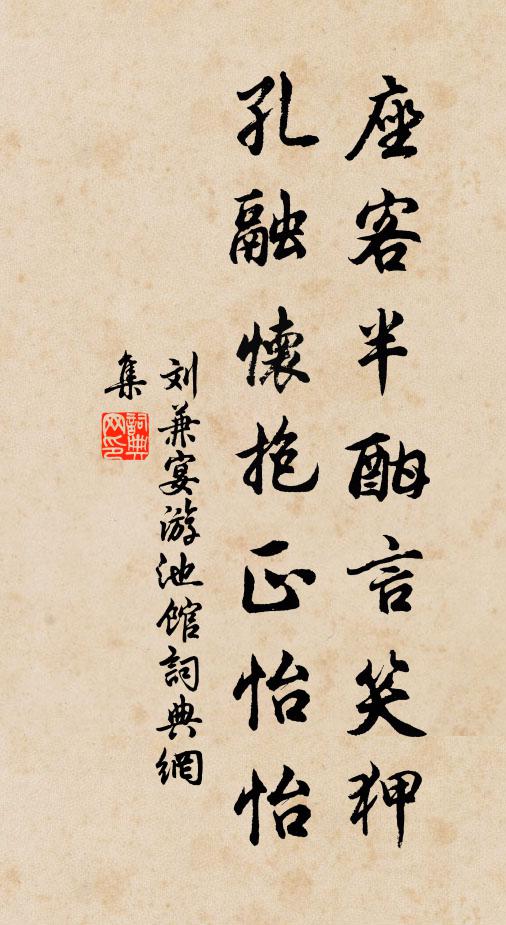 座客半酣言笑狎
孔融懷抱正怡怡
刘兼宴游池館詞典網
集
詞典網印